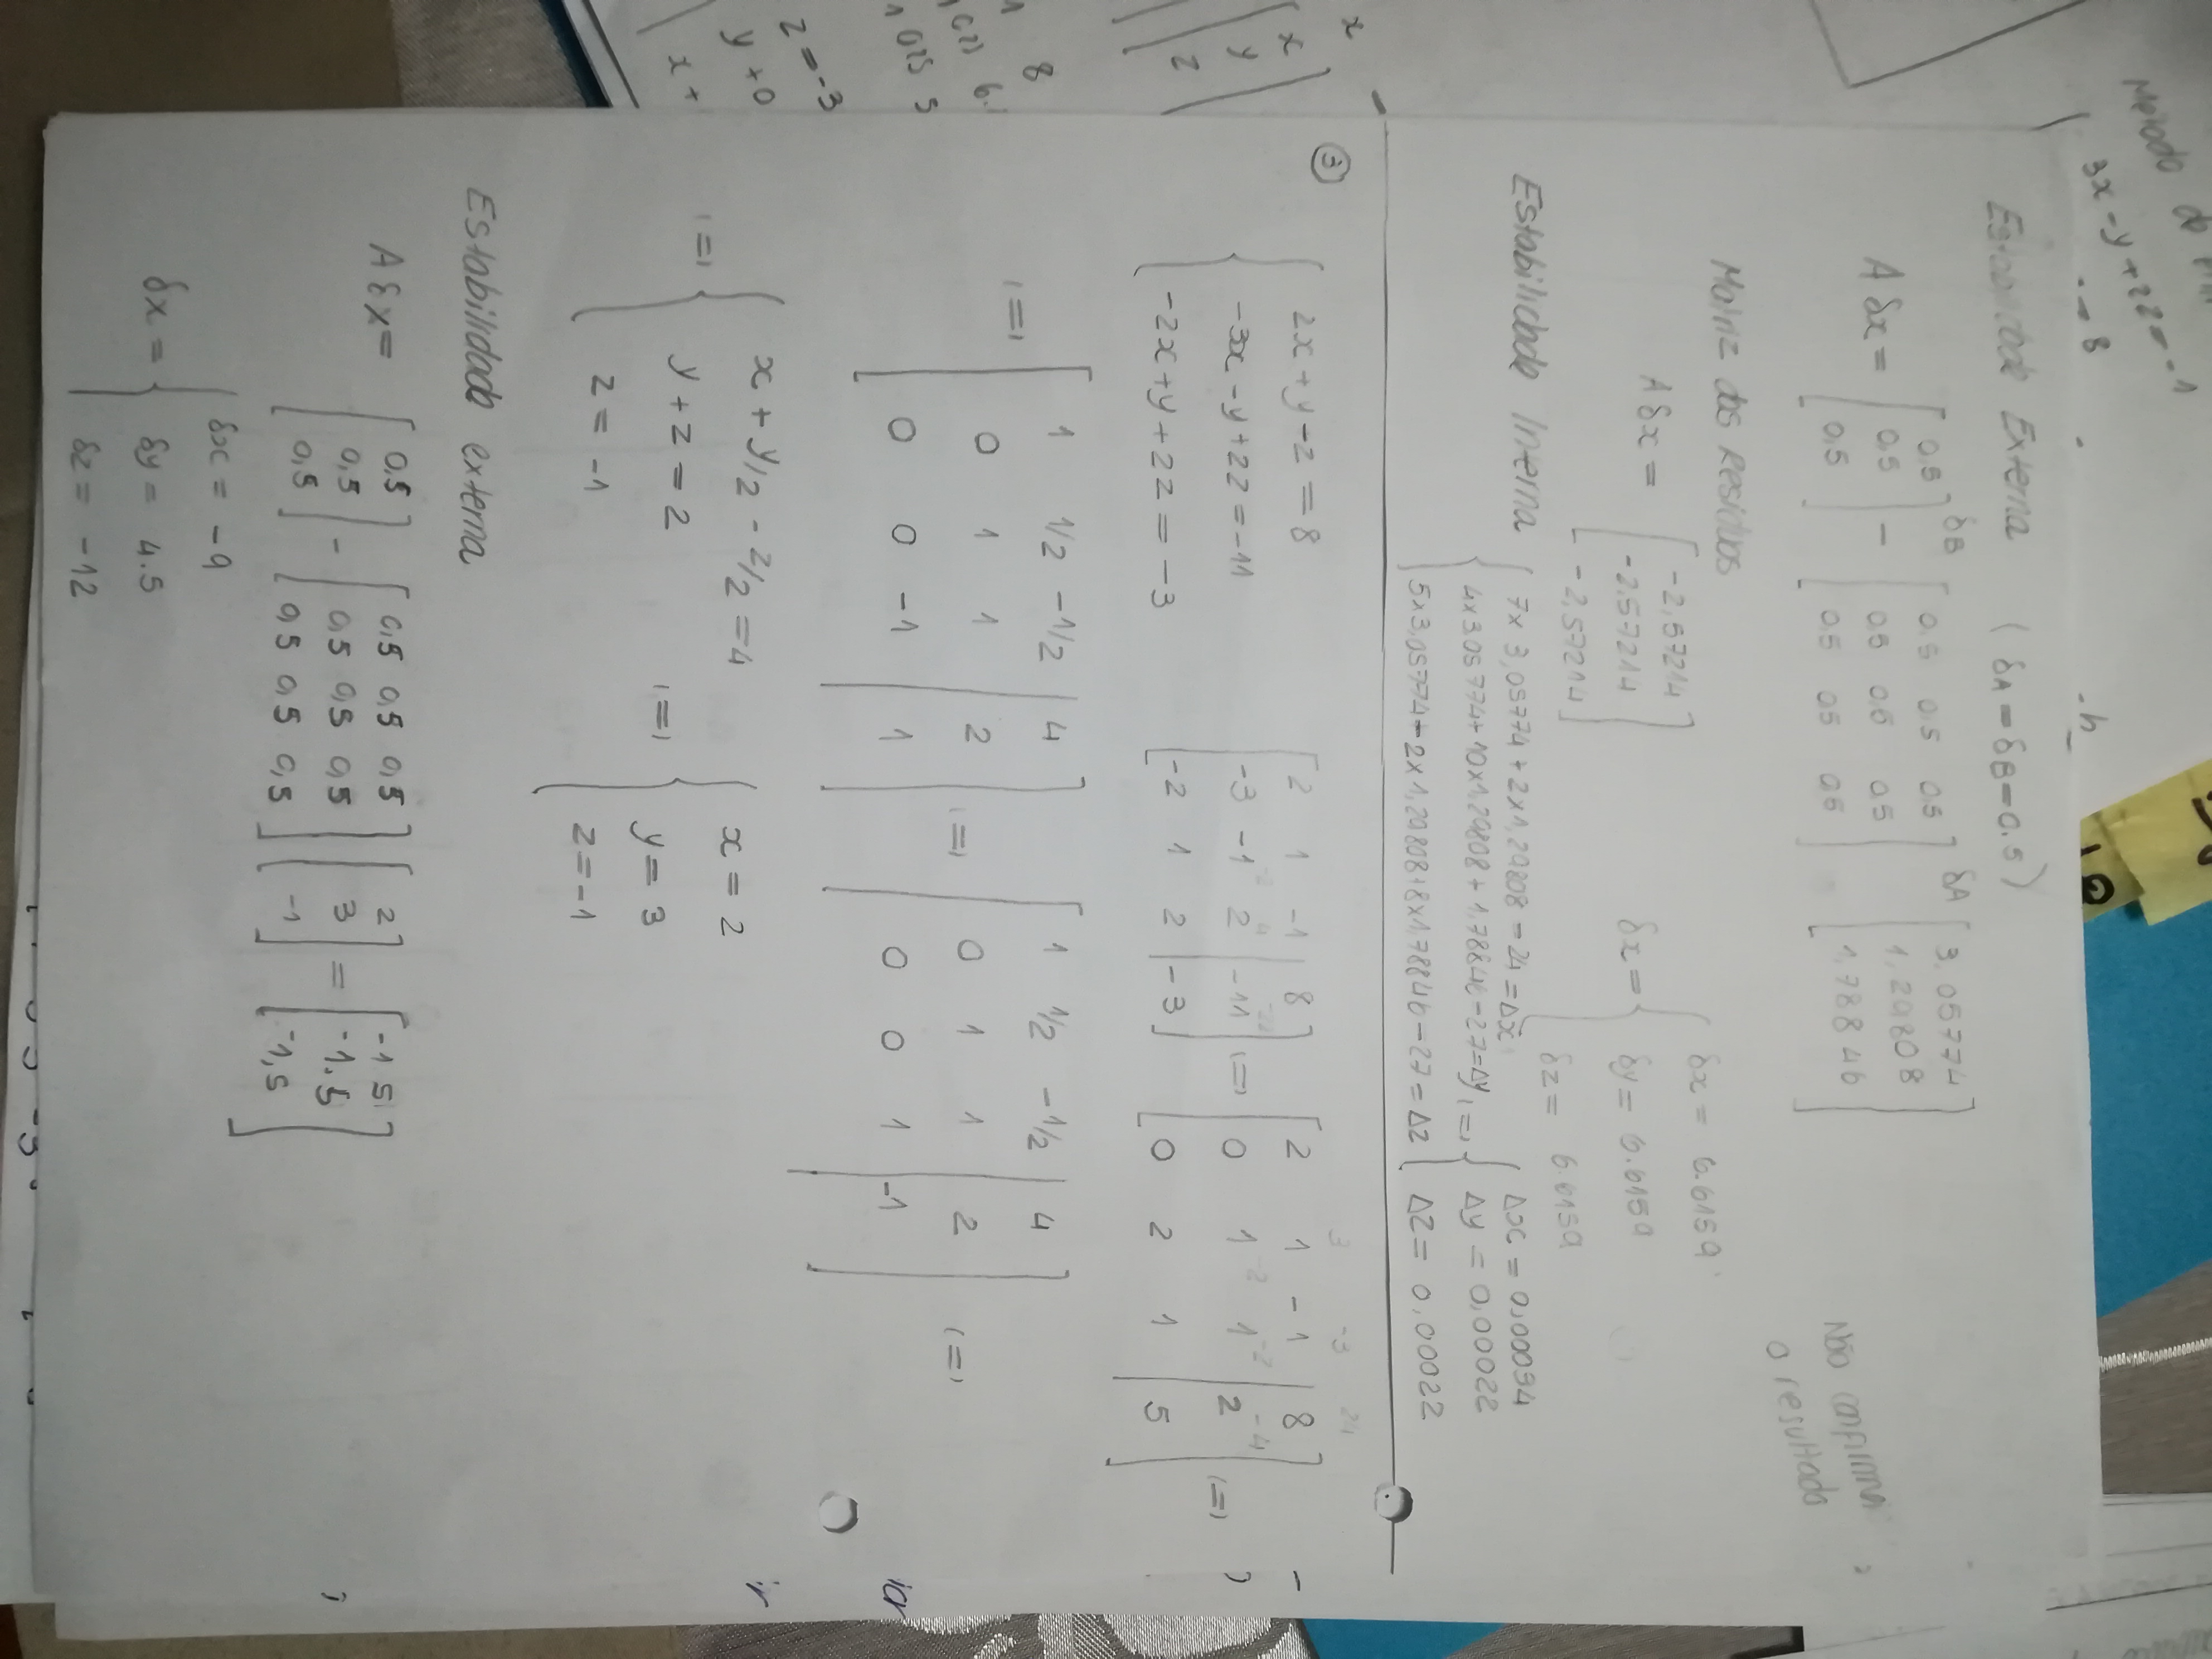 Método de
3x-y+2z=-1
= 8
Estabilidade Externa (δA=δB=0.5)
A δx = [0,5 0,5 0,5] δB - [0.5 0.5 0.5 0.5 0.5 0.5 0.5 0.5 0.5] δA [3,05774 1,29808 1,78846]
Não confirma
o resultado
Matriz dos Resíduos
A δx = [-2,57214 -2.57214 -2,57214]
δx = { δx = 6.6159
δy = 6.6159
δz = 6.6159
Estabilidade Interna { 7x 3,05774 + 2x1,29808 - 24 = Δx { Δx = 0,00034
4x3.05774+10x1,29808 + 1,78846-27=Δy (=) Δy = 0,00022
5x3,05774-2x1,29808+8x1,78846-27=Δz Δz = 0,00022
③
2x+y-z=8 [2 1 -1 | 8 [2 1 -1 | 8
-3x-y+2z=-11 -3 -1 2 | -11 (=) 0 1 1 | 2 (=)
-2x+y+2z=-3 -2 1 2 | -3] 0 2 1 | 5]
(=) [1 1/2 -1/2 | 4 [1 1/2 -1/2 | 4
0 1 1 | 2 (=) 0 1 1 | 2 (=)
0 0 -1 | 1] 0 0 1 | -1]
(=) { x + y/2 - z/2 = 4 { x = 2
y + z = 2 (=) y = 3
z = -1 z = -1
Estabilidade externa
A δx = [0,5 0,5 0,5] - [0,5 0,5 0,5 0,5 0,5 0,5 0,5 0,5 0,5] [2 3 -1] = [-1 5 -1.5 -1,5]
δx = { δx = -9
δy = 4.5
δz = -12
x
x
y
z
8
z=-3
y+0
x+